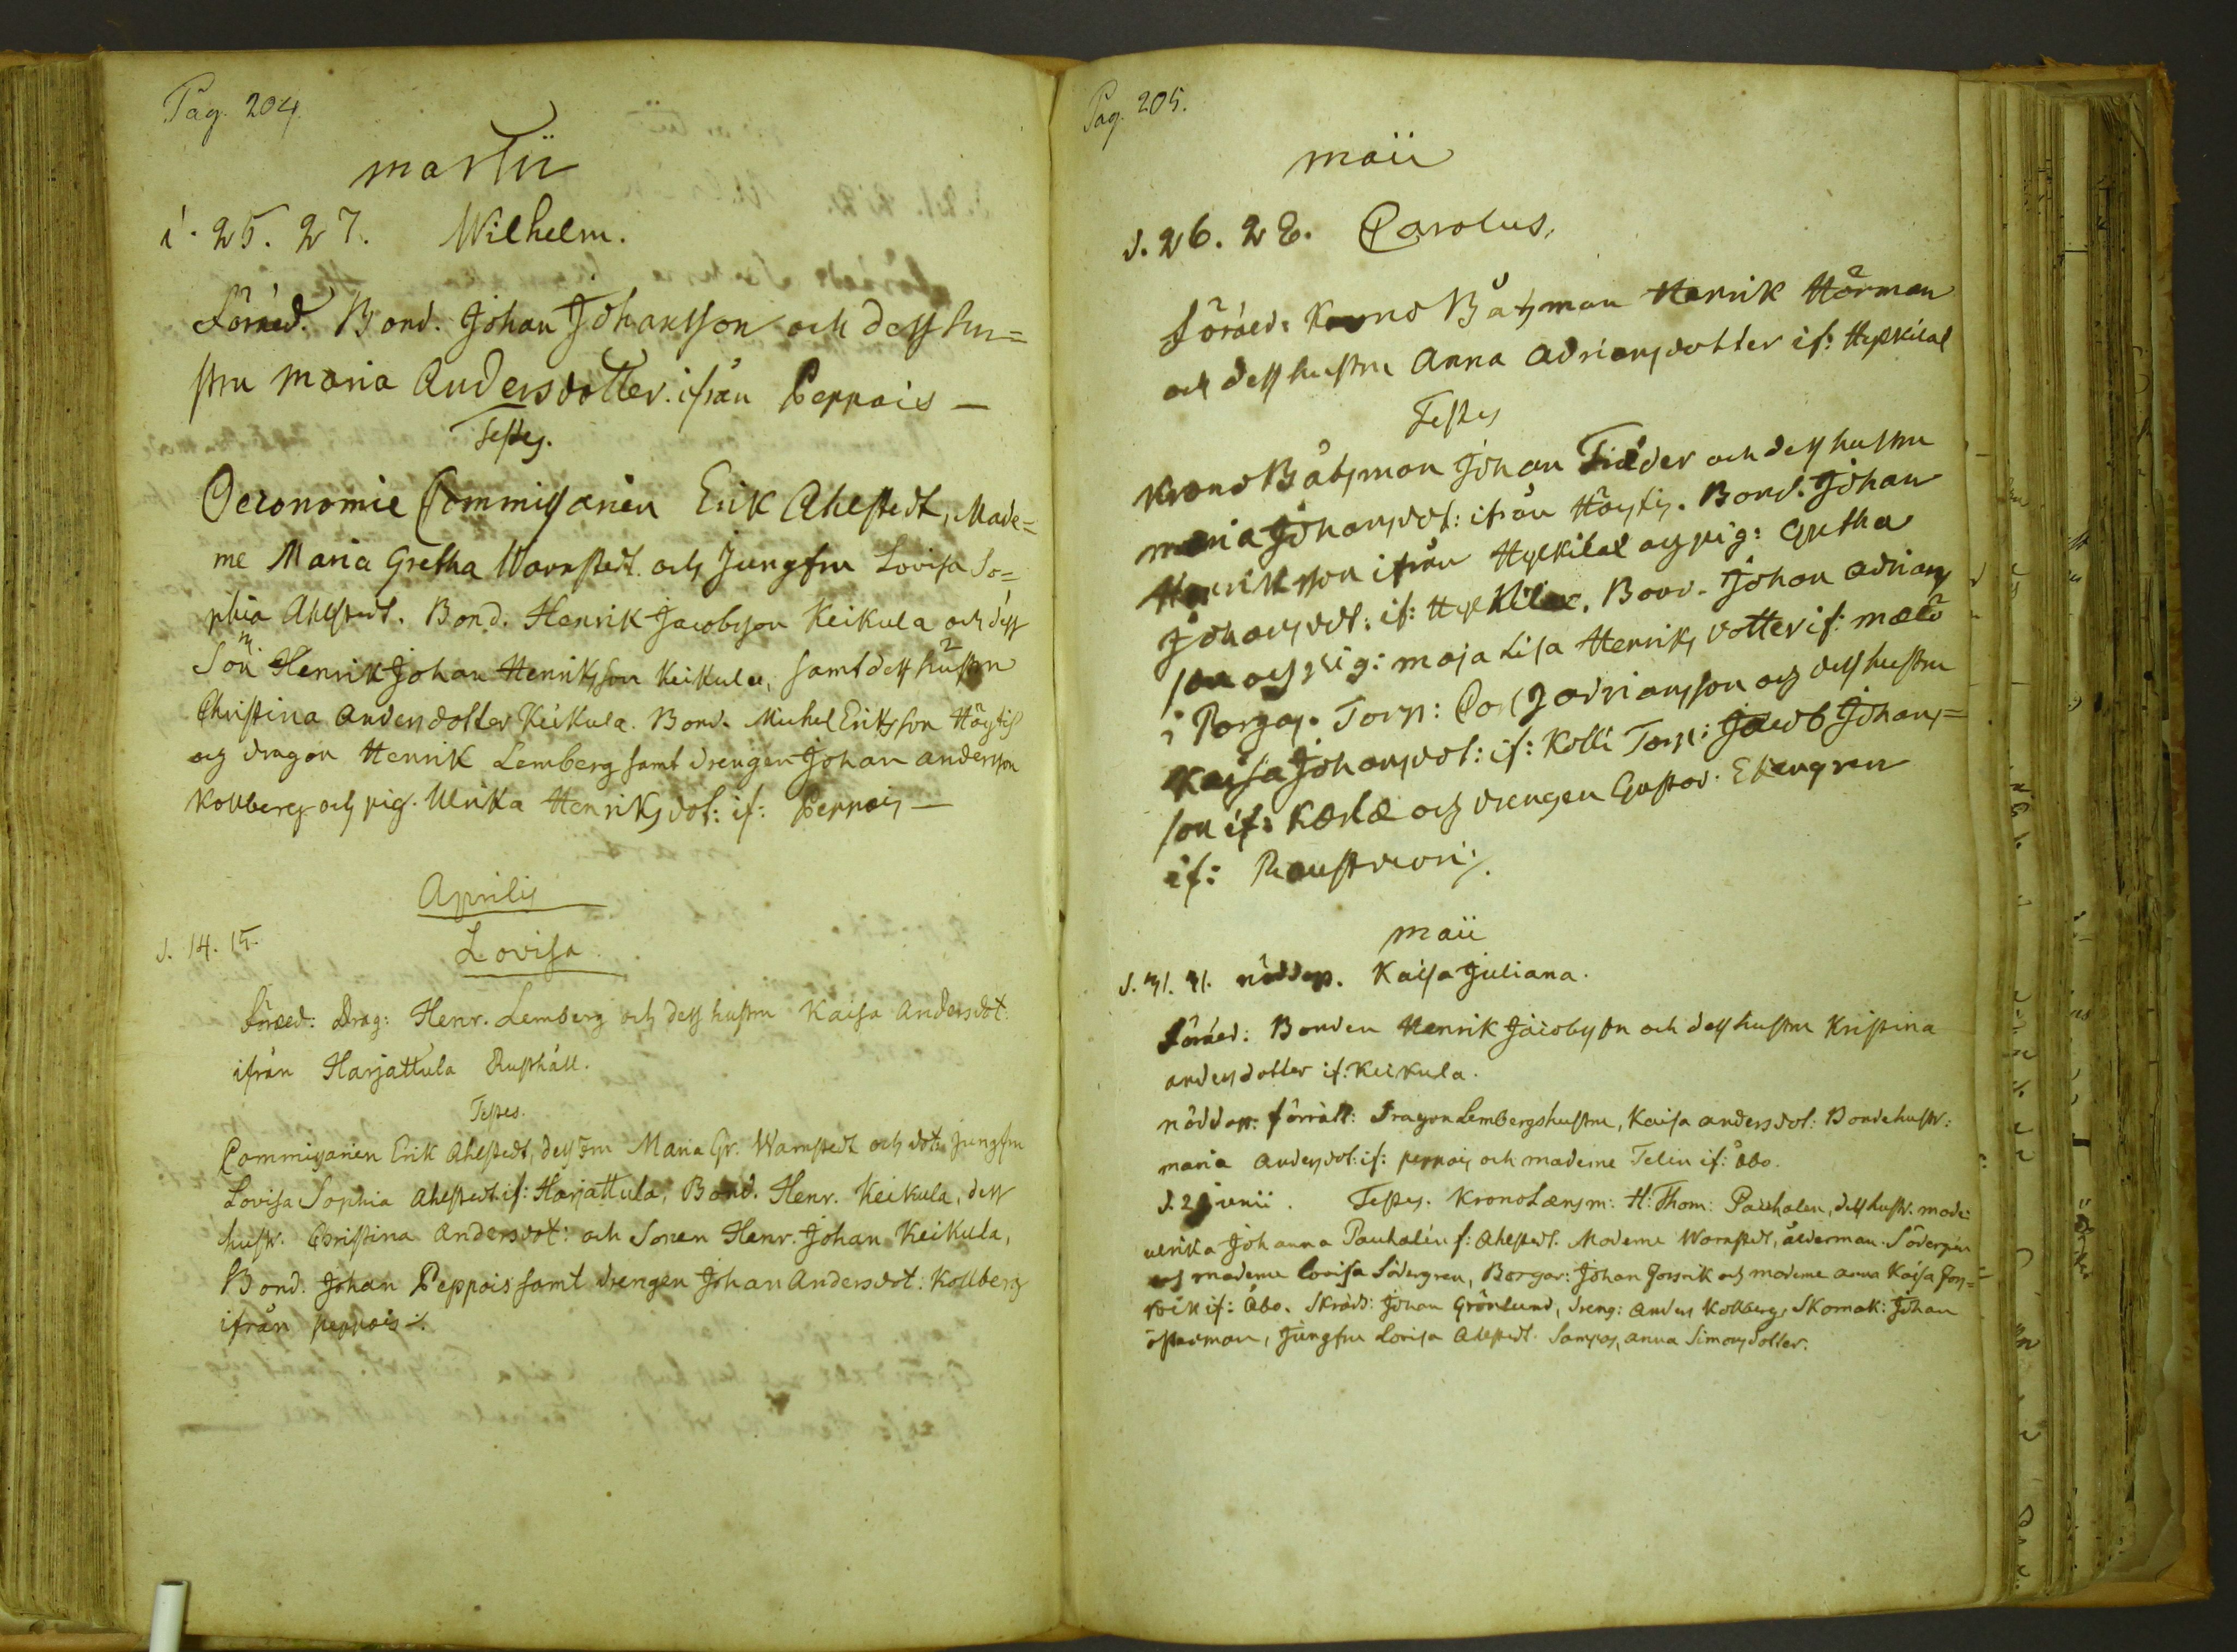 Pag. 204.
martii
d. 25. 27. Wilhelm.
Föräld. Bond. Johan Johansson och dess hu=
stru Maria Andersdotter ifrån Peppois —
Testes.
Oeconomie Commissarien Erik Ahlstedt, Made=
me Maria Gretha Warnstedt och Jungfru Lovisa So=
phia Ahlstedt. Bond. Henrik Jacobsson Keikula och dess
Son Henrik Johan Henriksson Keikula, samt dess hustru
Christina Andersdotter Keikula. Bond. Michel Eriksson Höytis
och dragon Henrik Lemberg samt drengen Johan andersson
Kollberg och pig. Ulrika Henriksdot: if: Peppois —
Aprilis
d. 14. 15. Lovisa.
Föræld: Drag: Henr. Lemberg och dess hustru Kaisa Andersdot:
ifrån Harjattula Rusthåll.
Testes.
Commissarien Erik Ahlstedt, dess fru Maria Gr. Warnstedt och dott. jungfru
Lovisa Sophia Ahlstedt if: Harjattula, Bond. Henr. Keikula, dess
hustr. Christina Andersdot: och Sonen Henr. Johan Keikula,
Bond. Johan Peppois samt drengen Johan Andersdot: Kollberg
ifrån peppois ./.
Pag. 205.
maii
d. 26. 28. Carolus,
Föräld: Krono Båtsman Henrik Hörman
och dess hustru Anna Adriansdotter if:
Testes
Krono Båtsman Johan och dess hustru
maria Johansdot: ifrån Höytis. Bond. Johan
Henriksson ifrån och pig: Gretha
Johansdot: if: Bond. Johan adrians
son och pig: maja Lisa Henriksdotter if:
i Pargas. Torp: Carl Adriansson och dess hustru
Kaisa Johansdot: if: Kolli Torp: Jacob Johans=
son if: och drengen Gustav Ekengren
if:
maii
d. 31. 31. nöddop. Kaisa Juliana.
Föräld: Bonden Henrik Jacobsson och dess hustru Kristina
andersdotter if: Keikula.
nöddop: förrätt: Dragon Lembergs hustru, Kaisa andersdot: Bondehustr:
maria Andersdot: if: peppois och mademe Telin if: Åbo.
d. 2 junii. Testes. Krono Lænsm: H: Thom: Pauhalen, dess hustr. made:
ulrika Johanna Pauhalin f: Ahlstedt. Mademe Warnstedt, ålderman Södergren
och mademe Lovisa Södergren, Borgar: Johan Forsvik och mademe anna Kaisa Fors=
vik if: Åbo. Skrädd: Johan Grönlund, dreng: Anders Kollberg, Skomak: Johan
österman, Jungfru Lovisa Ahlstedt. anna Simonsdotter.